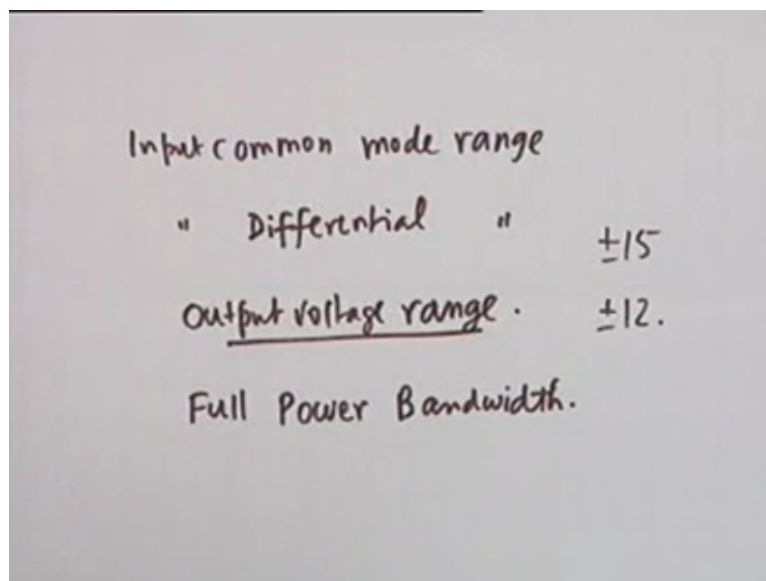 Input common mode range
" Differential "
±15
Output voltage range. ±12.
Full Power Bandwidth.